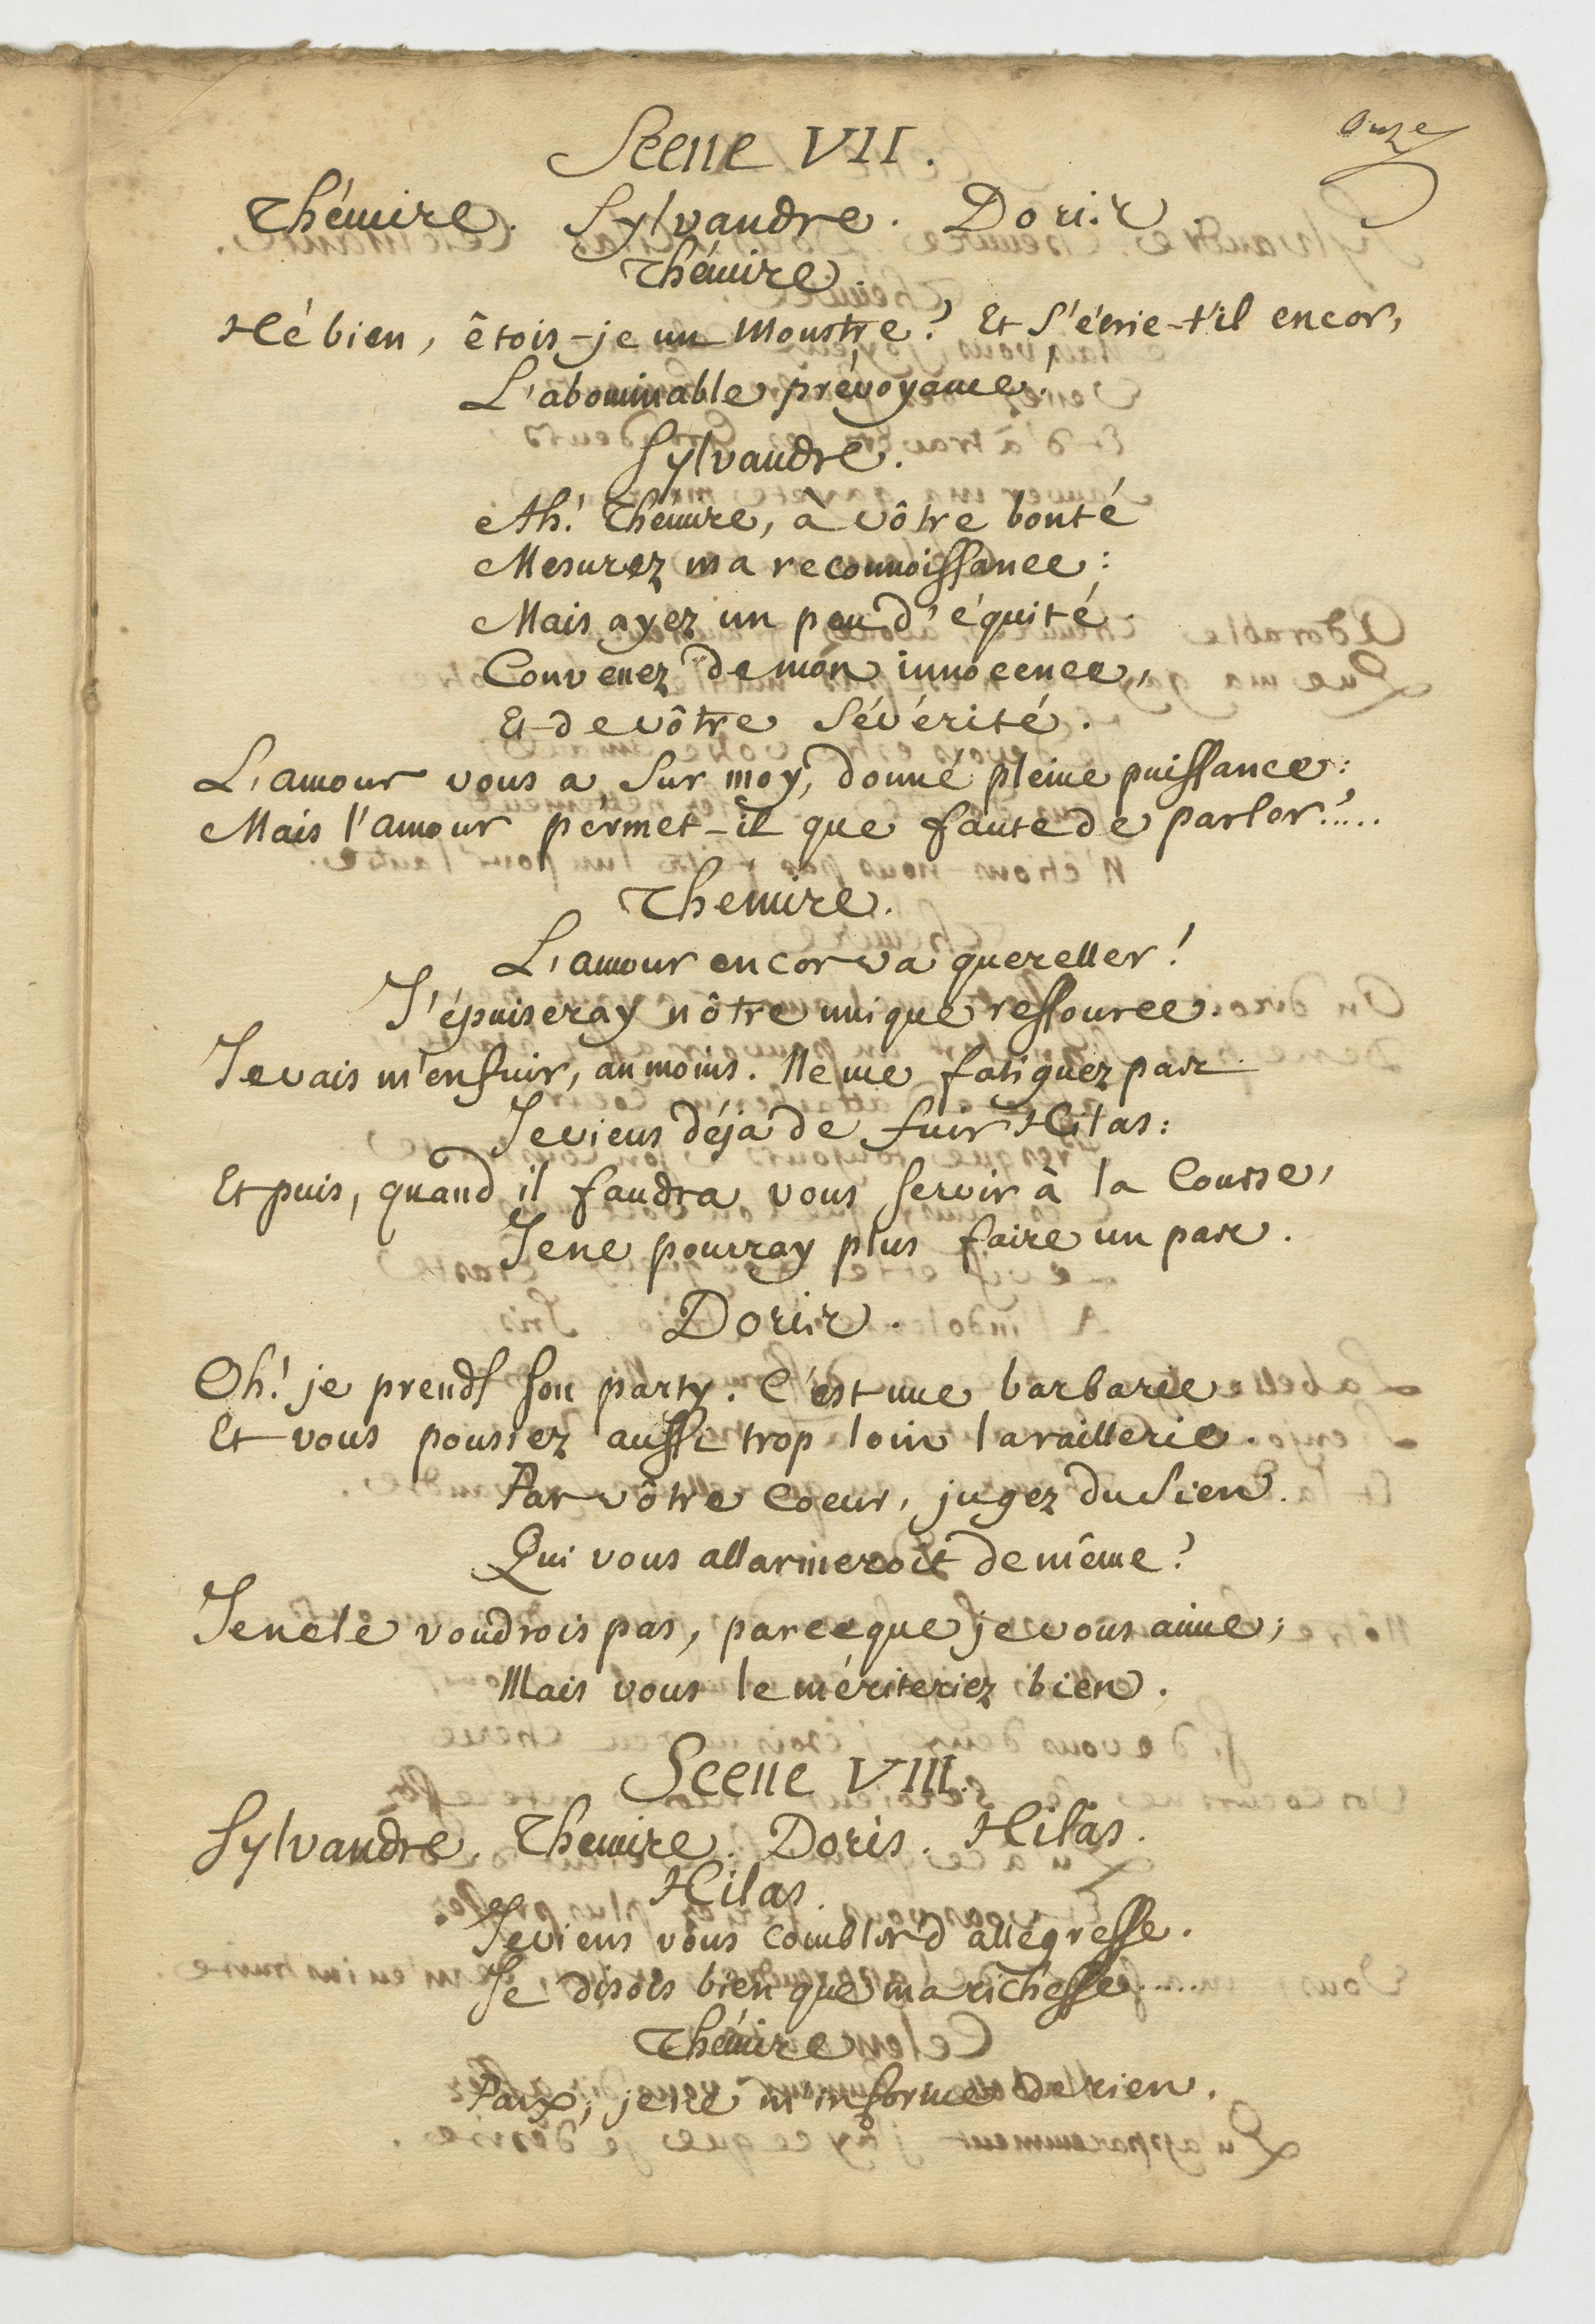 onze
Scene VII.
Thémire. Sylvandre. Doris.
Thémire.
Hé bien, êtois-je un Monstre? Et s'écrie-t'il encor,
L'abominable prévoyance!
Sylvandre.
Ah! Thémire, à vôtre bonté
Mesurez ma reconnoissance:
Mais ayez un peu d'équité.
Convenez de mon innocence,
Et de vôtre sévérité.
L'amour vous a, sur moy, donné pleine puissance:
Mais l'amour pérmet-il que faute de parler?....
Themire.
L'amour encor va quereller!
J'épuiseray nôtre unique ressource.
Je vais m'enfuir, au moins. Ne me fatiguez pas
Je viens déjà de fuir Hilas:
Et puis, quand il faudra vous servir à la Course,
Je ne pourray plus faire un pas.
Doris.
Oh! je prends son party. C'est une barbarie
Et vous poussez aussi trop loin la raillerie.
Par vôtre Coeur, jugez du sien.
Qui vous allarmeroit de même?
Je ne le voudrois pas, parceque je vous aime;
Mais vous le mériteriez bien.
Scene VIII.
Sylvandre. Themire. Doris. Hilas.
Hilas.
Je viens vous combler d'allégresse.
Je disois bien que ma richesse.....
Thémire
Paix; je ne m'informe de rien.